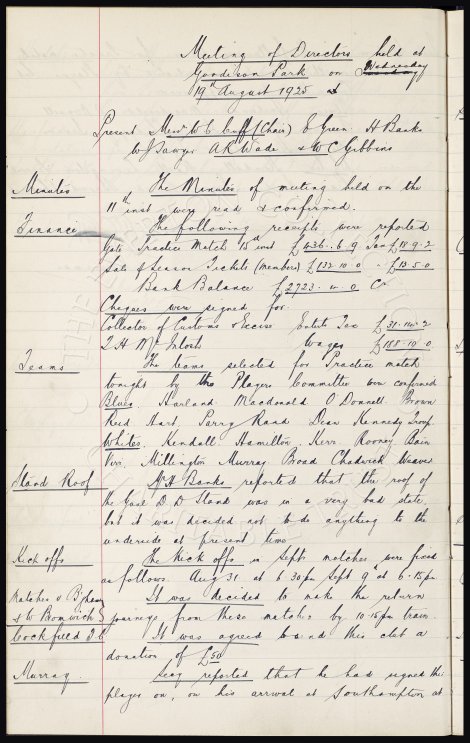 Meeting of Directors held at
Goodison Park on Wednesday
19th August 1925
Present Messrs W C Cuff (Chair) E Green H Banks
W J Sawyer A R Wade & W C Gibbins
Minutes The Minutes of meeting held on the
11th inst were read & confirmed.
Finance The following receipts were reported
Gate Practice Match 15th inst £436. 6. 9 Tax £18. 9. 2
Sale of Season Tickets (members) £132. 10. 0 £13. 5. 0
Bank Balance £2723. 4. 0 Cr
Cheques were signed for
Collector of Customs & Excise Entets Tax £31. 14. 2
T. H. McIntosh Wages £188. 10. 0
Teams The teams selected for Practice match
tonight by the Players Committee were confirmed
Blues. Harland Macdonald O'Donnell Brown
Reid Hart, Parry Raad Dean Kennedy Troup.
Whites. Kendall Hamilton, Kerr. Rooney Bain
Virr. Millington Murray Broad Chadwick Weaver
Stand Roof Mr H. Banks reported that the roof of
the Goal Stand was in a very bad state
but it was decided not to do anything to the
underside at present time
Kick offs The Kick offs in Septr matches were fixed
as follows. Aug 31. at 6.30pm Sept 9th at 6.15pm
Matches v B'ham It was decided to make the return
& W Bromwich journeys from these matches by 10.15pm train.
Cockfield F C It was agreed to send this club a
donation of £50
Murray. Secy reported that he had signed this
player on, on his arrival at Southampton at